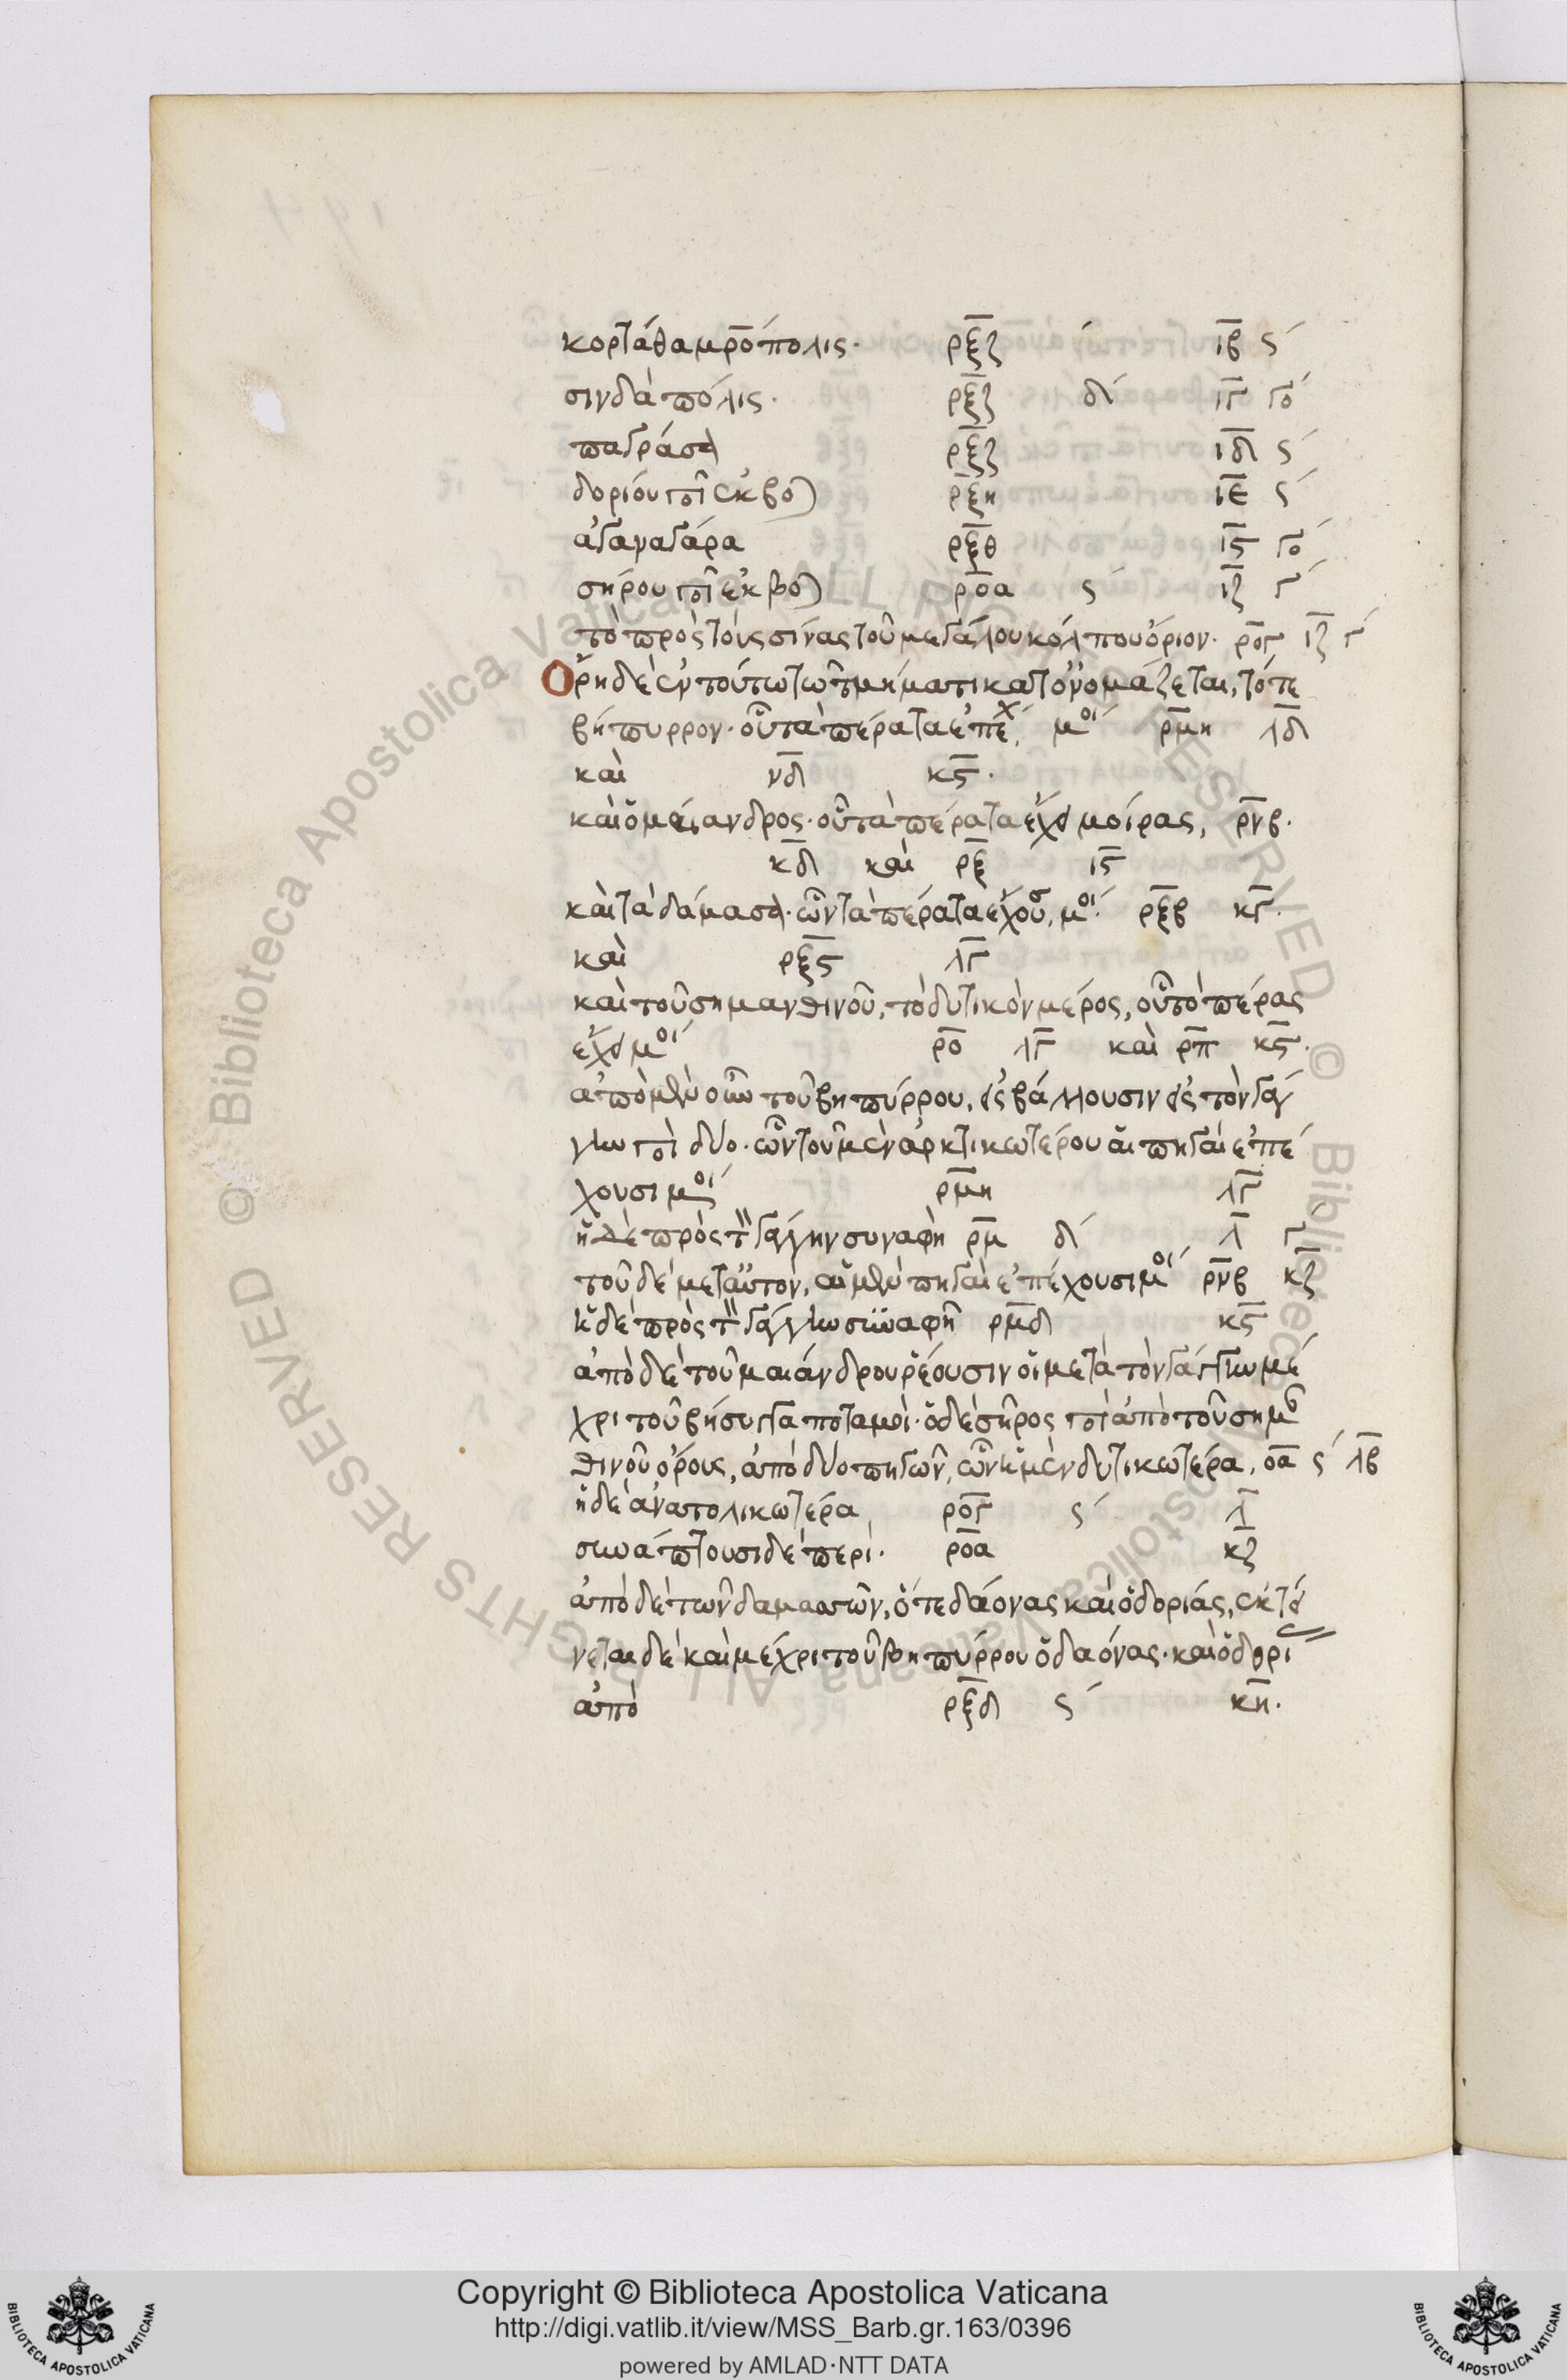 κορτάθα μρο̅πολις· ρξ̅ζ ιβ̅ ς´
σινδὰ πόλις· ρξ̅ζ δ´ ιγ̅ γο´
παγράσα ρξ̅ζ ιδ̅ ς´
δορίου ποτ ἐκβο) ρξ̅η ιε̅ ς´
ἀγαναγάρα ρξ̅θ ις̅ γο´
σήρου ποτ ἐκβο) ρο̅α ς´ ιζ̅ γ´
τὸ πρὸς τοὺς σίνας τοῦ μεγάλου κόλπου ὅριον· ρο̅γ ιζ̅ γ´
Ὄρη δὲ ἐν τούτω τῶ τμήματι κατονομάζεται, τό τε
βήπυρρον· οὗ τὰ πέρατα ἐπέχ, μοι´ ρμ̅η λδ̅
καὶ νδ̅ κς̅·
καὶ ὁ μαίανδρος· οὗ τὰ πέρατα ἔχει μοίρας, ρν̅β·
κδ̅ καὶ ρξ̅ ις̅
καὶ τὰ δάμασα· ὧν τὰ πέρατα ἔχουσ, μοι´· ρξ̅β κγ̅·
καὶ ρξ̅ς λγ̅
καὶ τοῦ σημανθινοῦ, τὸ δυτικὸν μέρος, οὗ τὸ πέρας
ἔχει μοι´ ρο̅ λγ̅ καὶ ρπ̅ κς̅·
ἀπὸ μὲν οὖν τοῦ βηπύρρου, εἰσβάλλουσιν εἰς τὸν γάγ
γην ποτ δύο· ὧν τοῦ μὲν ἀρκτικωτέρου αἱ πηγαὶ ἐπέ
χουσι μοι´ ρμ̅η λγ̅
ἡ δὲ πρὸς τ῝ γάγγην συναφὴ ρμ̅ δ´ λ̅ γ
τοῦ δὲ μετ αὐτὸν, αἱ μὲν πηγαὶ ἐπέχουσι μοι´ ρν̅β κζ̅
ἡ δὲ πρὸς τ῝ γάγγην συναφὴ ρμ̅δ κς̅
ἀπὸ δὲ τοῦ μαιάνδρου ῥέουσιν οἱ μετὰ τὸν γάγγην μέ
χρι τοῦ βήσυγγα ποταμοί· ὁ δὲ σῆρος ποτ ἀπὸ τοῦ σημ
θινοῦ ὄρους, ἀπὸ δύο πηγῶν, ὧν ἡ μὲν δυτικωτέρα, οα̅ ς´ λβ̅
ἡ δὲ ἀνατολικωτέρα ρο̅γ ς´ λ̅
συνάπτουσι δὲ περὶ· ρο̅α κζ̅
ἀπὸ δὲ τῶν δαμασσῶν, ὅ τε δάονας καὶ ὁ δοριάς, ἐκτεί
νεται δὲ καὶ μέχρι τοῦ βηπύρρου ὁ δαόνας· καὶ ὁ δορι
ἀπὸ ρξ̅δ ς´ κη̅·
Copyright © Biblioteca Apostolica Vaticana
http://digi.vatlib.it/view/MSS_Barb.gr.163/0396
powered by AMLAD·NTT DATA